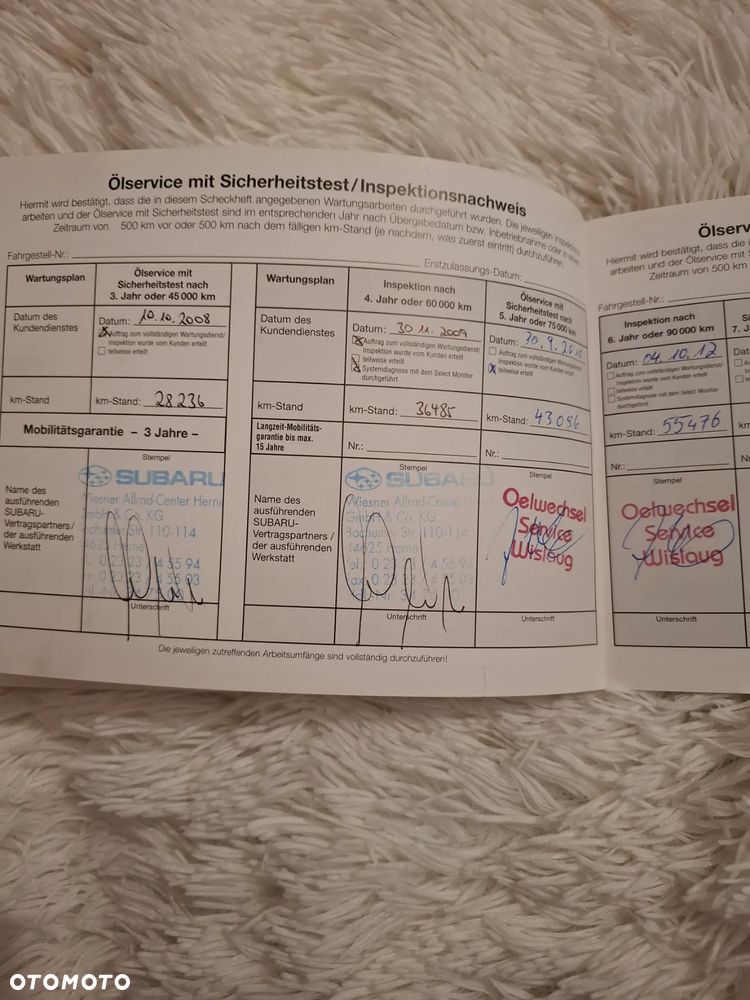 Ölservice mit Sicherheitstest/Inspektionsnachweis
Hiermit wird bestätigt, dass die in diesem Scheckheft angegebenen Wartungsarbeiten durchgeführt wurden. Die jeweiligen
arbeiten und der Ölservice mit Sicherheitstest sind im entsprechenden Jahr nach Übergabedatum bzw. Inbetriebnahme oder in einem
Zeitraum von 500 km vor oder 500 km nach dem fälligen km-Stand (je nachdem, was zuerst eintritt) durchzuführen.
Fahrgestell-Nr.:
Erstzulassungs-Datum:
Wartungsplan
Ölservice mit
Sicherheitstest nach
3. Jahr oder 45 000 km
Datum des
Kundendienstes
Datum: 10.10.2008
Auftrag zum vollständigen Wartungsdienst/
Inspektion wurde vom Kunden erteilt
teilweise erteilt
km-Stand
km-Stand: 28 236
Mobilitätsgarantie – 3 Jahre –
Name des
ausführenden
SUBARU-
Vertragspartners/
der ausführenden
Werkstatt
Stempel
SUBARU
Wiesner Allrad-Center Herne
GmbH & Co. KG
Bochumer Str. 110-114
44625 Herne
Unterschrift
Wartungsplan
Inspektion nach
4. Jahr oder 60 000 km
Ölservice mit
Sicherheitstest nach
5. Jahr oder 75 000 km
Datum des
Kundendienstes
Datum: 30.11.2009
Auftrag zum vollständigen Wartungsdienst/
Inspektion wurde vom Kunden erteilt
teilweise erteilt
Systemdiagnose mit dem Select Monitor
durchgeführt
Datum: 30.9.2010
Auftrag zum vollständigen Wartungsdienst/
Inspektion wurde vom Kunden erteilt
teilweise erteilt
km-Stand
km-Stand: 36485
km-Stand: 43086
Langzeit-Mobilitäts-
garantie bis max.
15 Jahre
Nr.:
Nr.:
Name des
ausführenden
SUBARU-
Vertragspartners /
der ausführenden
Werkstatt
Stempel
SUBARU
Wiesner Allrad-Center
GmbH & Co. KG
Bochumer Str. 110-114
44625 Herne
Unterschrift
Stempel
Oelwechsel
Service
Wislaug
Unterschrift
Die jeweiligen zutreffenden Arbeitsumfänge sind vollständig durchzuführen!
Hiermit wird bestätigt, dass die
arbeiten und der Ölservice mit
Zeitraum von 500 km
Fahrgestell-Nr.:
Inspektion nach
6. Jahr oder 90 000 km
7.
Datum: 04.10.12
Auftrag zum vollständigen Wartungsdienst/
Inspektion wurde vom Kunden erteilt
teilweise erteilt
Systemdiagnose mit dem Select Monitor
durchgeführt
km-Stand: 55476
Nr.:
Stempel
Oelwechsel
Service
Wislaug
Unterschrift
OTOMOTO